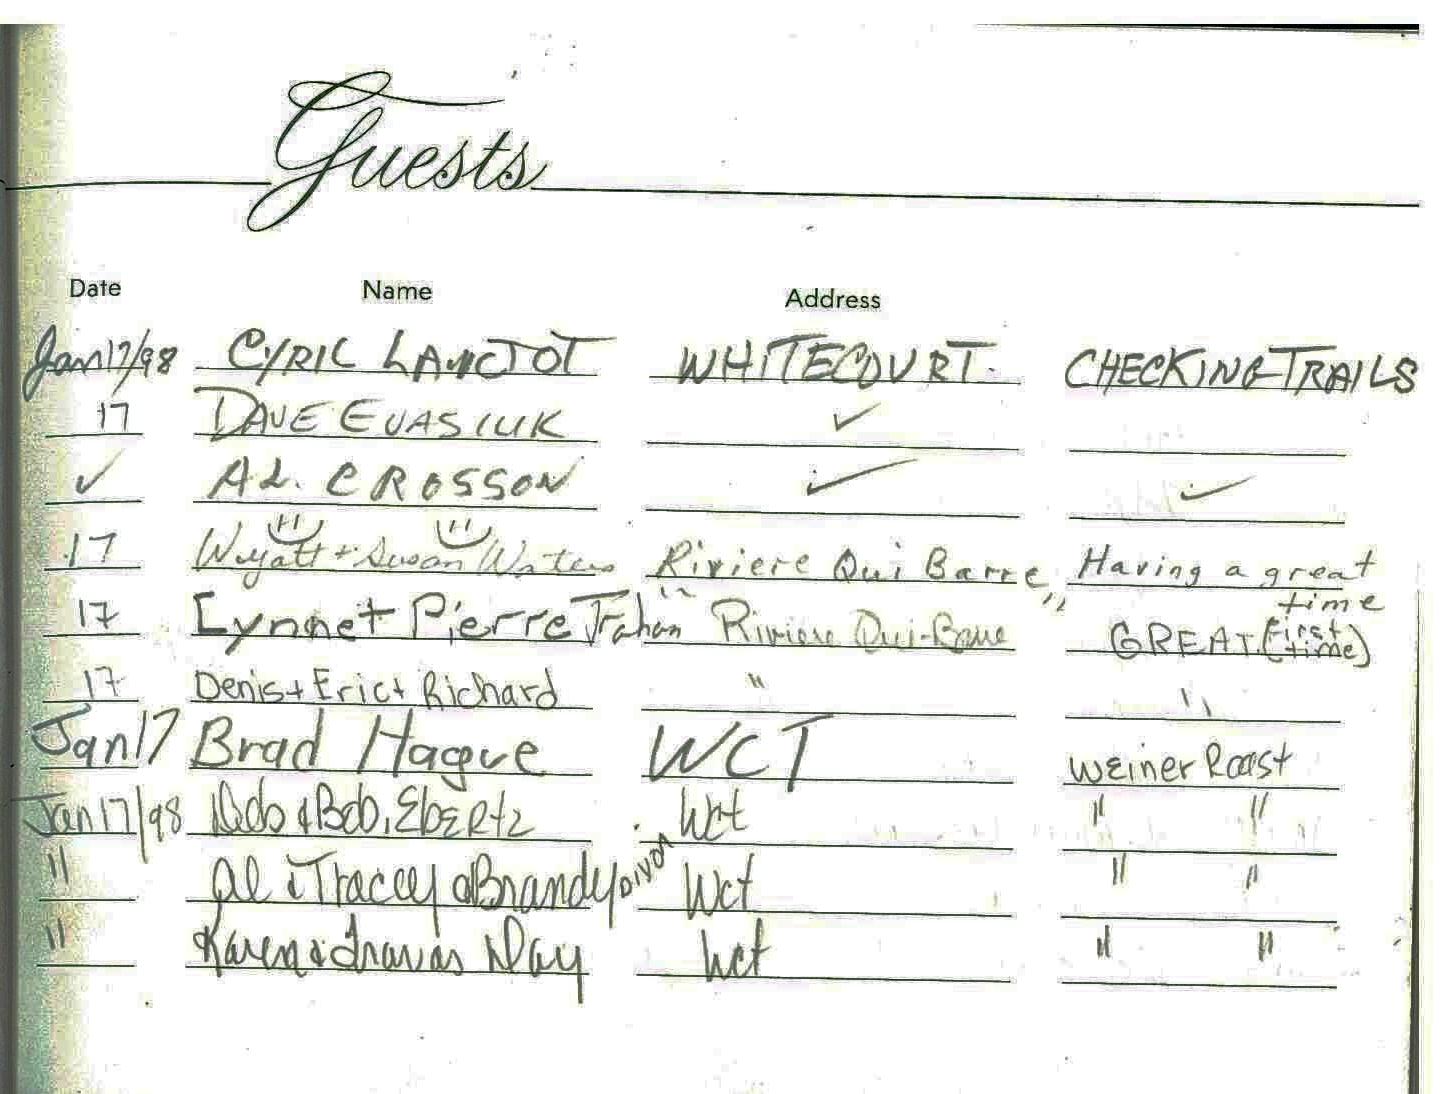 Guests
Date Name Address
Jan 17/98 CYRIL LANCTOT WHITECOURT. CHECKING TRAILS
17 DAVE EVASIUK ✓
✓ AL. CROSSON ✓ ✓
17 Wyatt + Susan Waters Riviere Qui Barre, Having a great
time
17 Lynnet Pierre Trahan Riviere Qui-Barre GREAT (First
time)
17 Denis + Eric + Richard " "
Jan 17 Brad Hague WCT Weiner Roast
Jan 17/98 Deb & Bob, Ebertz Wct " "
" Al & Tracey & Brandy Dixon Wct " "
" Karen & Travas Day Wct " "